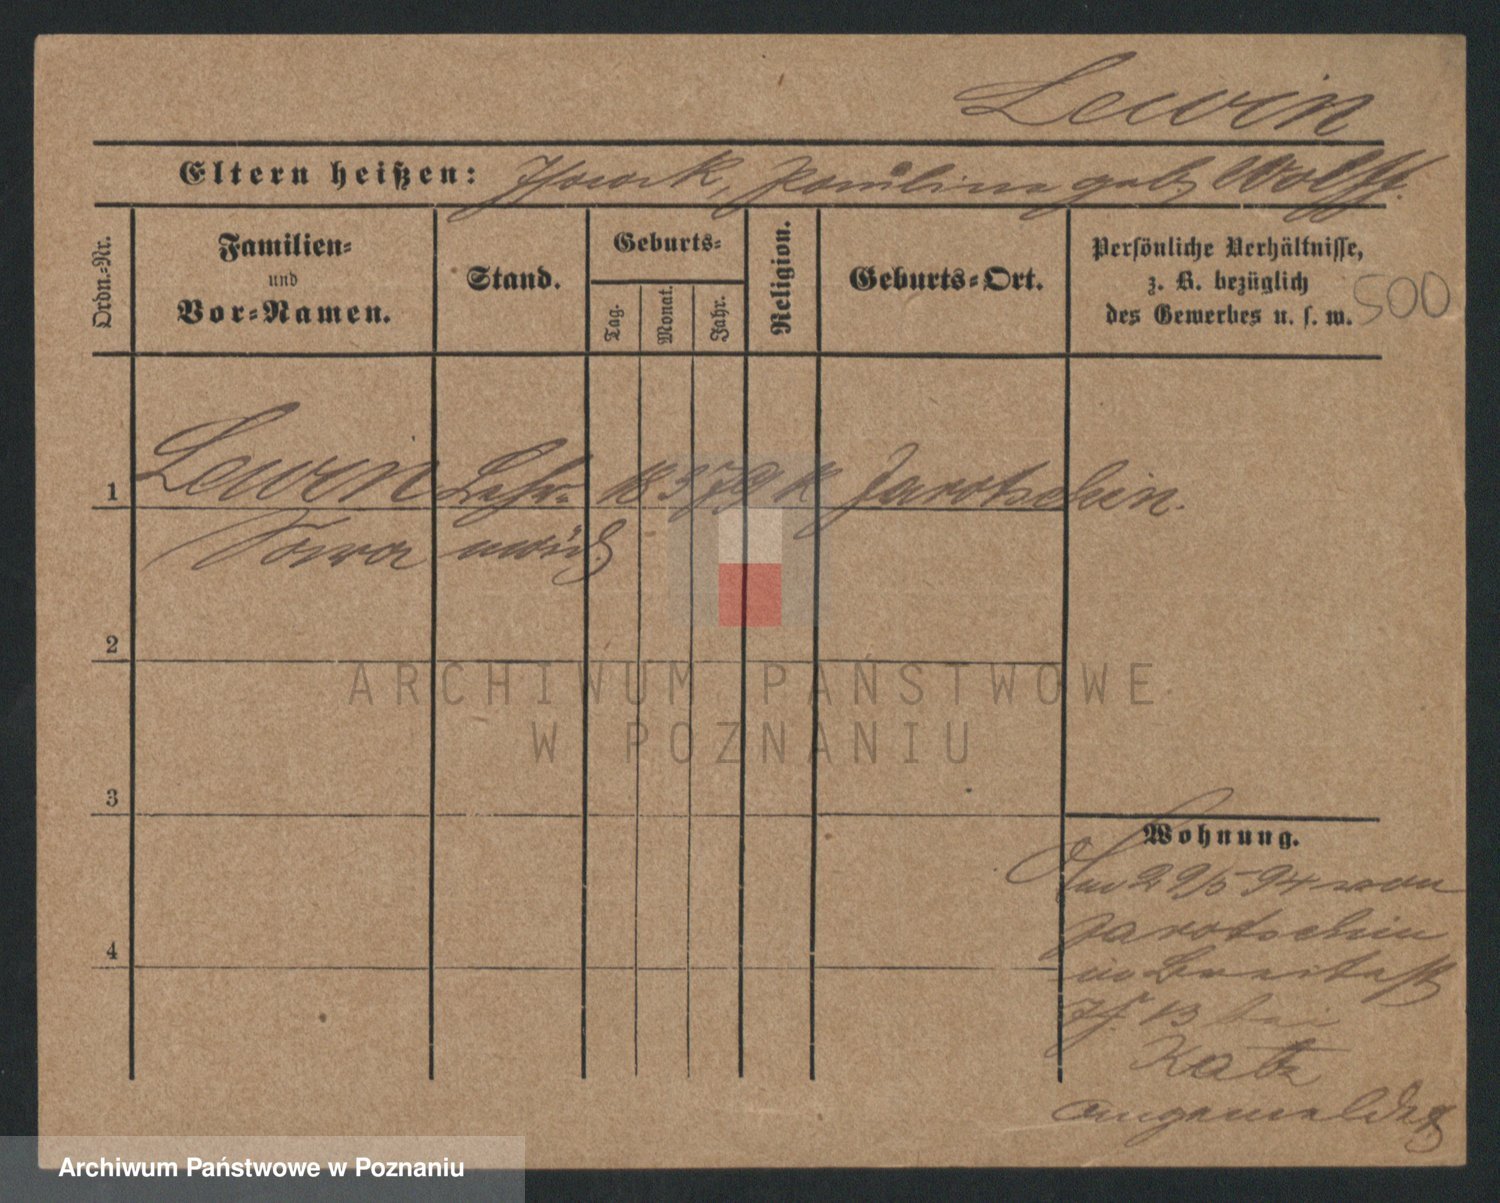 Lewin
Eltern heißen: Isaak, Paulina geb. Wolff.
Ordn.-Nr.
Familien-
und
Vor-Namen.
Stand.
Geburts-
Tag.
Monat.
Jahr.
Religion.
Geburts-Ort.
Persönliche Verhältnisse,
z. B. bezüglich
des Gewerbes u. s. w.
500
1
Lewin 18 3 79 Jarotschin.
2
3
4
Wohnung.
29/5 94 von
Jarotschin
in
13 bei
Katz
angemeldet
ARCHIWUM PAŃSTWOWE
W POZNANIU
Archiwum Państwowe w Poznaniu